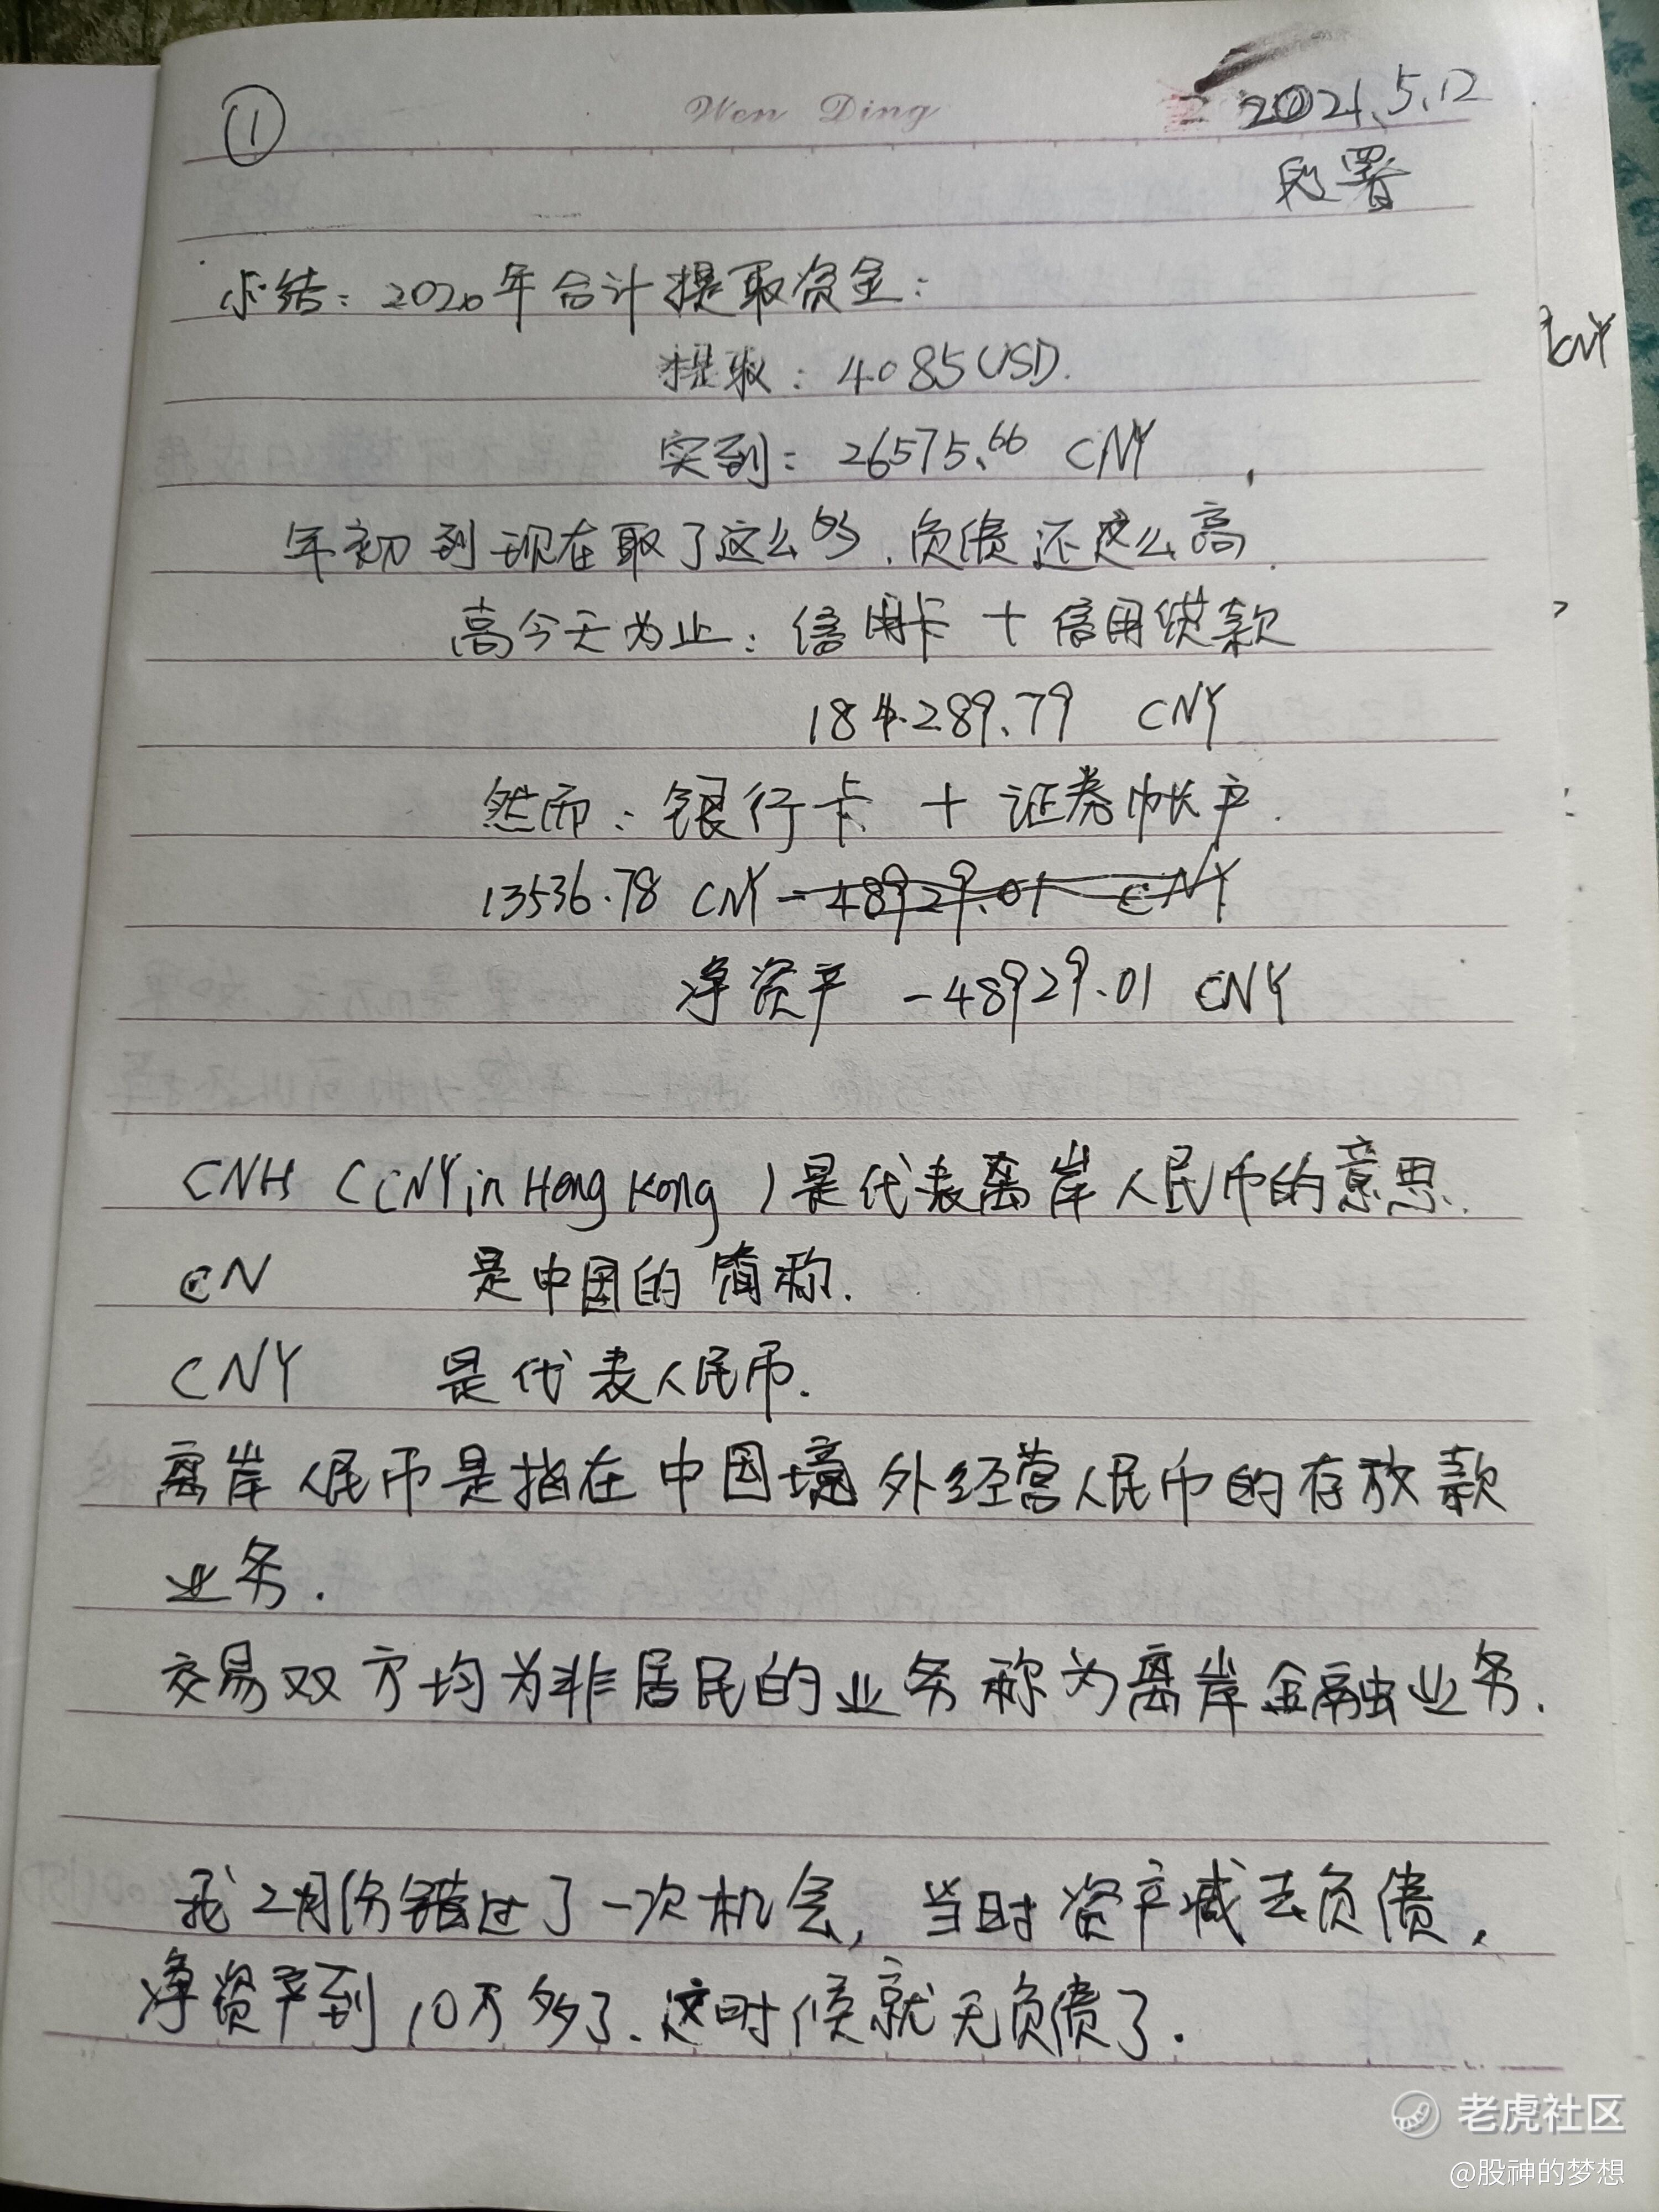 ① Wen Ding 2021.5.12
段署
小结：2020年合计提取资金：
提取：4085USD.
CNY
实到：26575.66 CNY
年初到现在取了这么多.负债还这么高.
高今天为止：信用卡 + 信用贷款
184.289.79 CNY
然而：银行卡 + 证券帐户.
13536.78 CNY -48929.01 CNY
净资产 -48929.01 CNY
CNH (CNY in Hong Kong)是代表离岸人民币的意思.
CN 是中国的简称.
CNY 是代表人民币.
离岸人民币是指在中国境外经营人民币的存放款
业务.
交易双方均为非居民的业务称为离岸金融业务.
我2月份错过了一次机会,当时资产减去负债,
净资产到10万多了.这时候就无负债了.
老虎社区
@股神的梦想